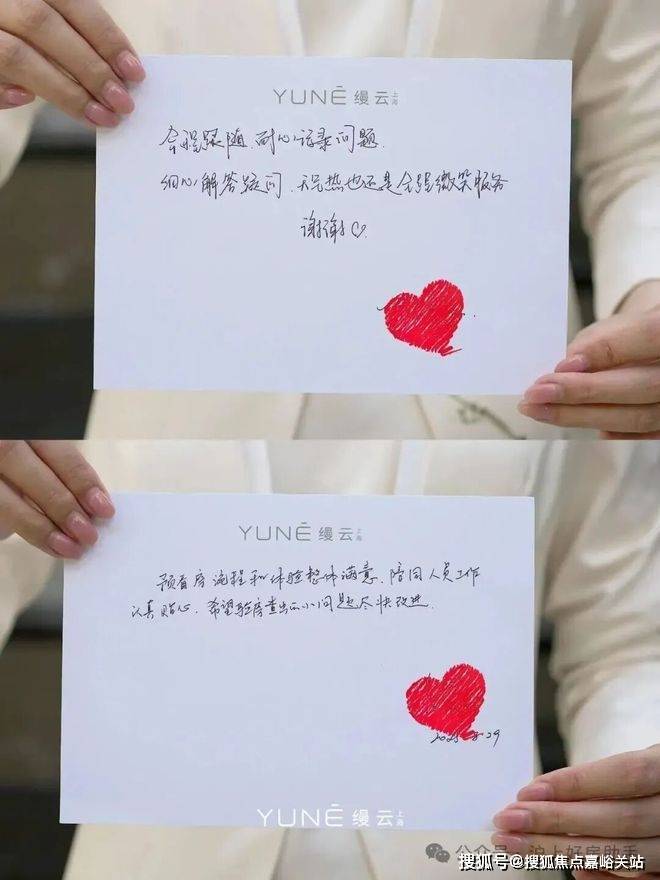 YUNÉ 缦云 上海
全程跟随、耐心记录问题、
细心解答疑问、天气热也还是全程微笑服务
谢谢♡.
YUNÉ 缦云 上海
预看房流程和体验整体满意、陪同人员工作
认真贴心、希望验房查出的小问题尽快改进.
8.29
YUNÉ 缦云 上海
公众号·沪上好房助手
搜狐号@搜狐焦点嘉峪关站